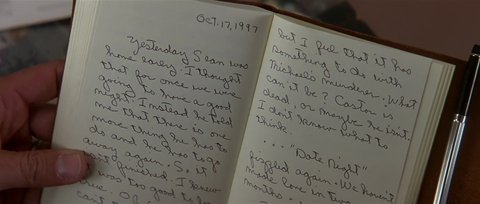 OCT. 17, 1997
Yesterday Sean was
home early. I thought
that for once we were
going to have a good
night. Instead he told
me that there is one
more thing he has to
do and he has to go
away again. So, it
isn't finished. I knew
was too good to be
true.
can't
but I feel that it has
something to do with
Michael's murderer. What
can it be? Castor is
dead, or maybe he isn't.
I don't know what to
think.
.... "Date Night"
fizzled again. We haven't
made love in two
months.